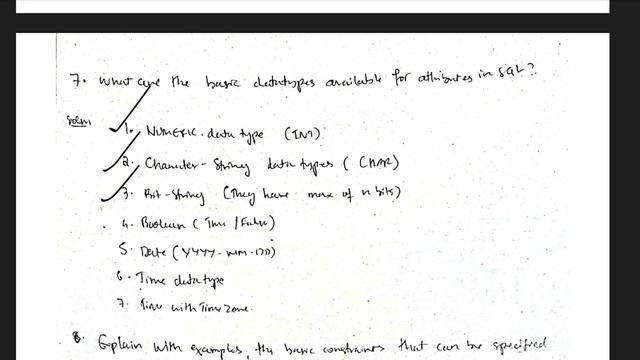 7. What are the basic datatypes available for attributes in SQL?
Soln
1. NUMERIC data type (INT)
2. Character-String data types (CHAR)
3. Bit-String (They have max of n bits)
4. Boolean (True/False)
5. Date (YYYY-MM-DD)
6. Time data type
7. Time with Time Zone.
8. Explain with examples, the basic constraints that can be specified